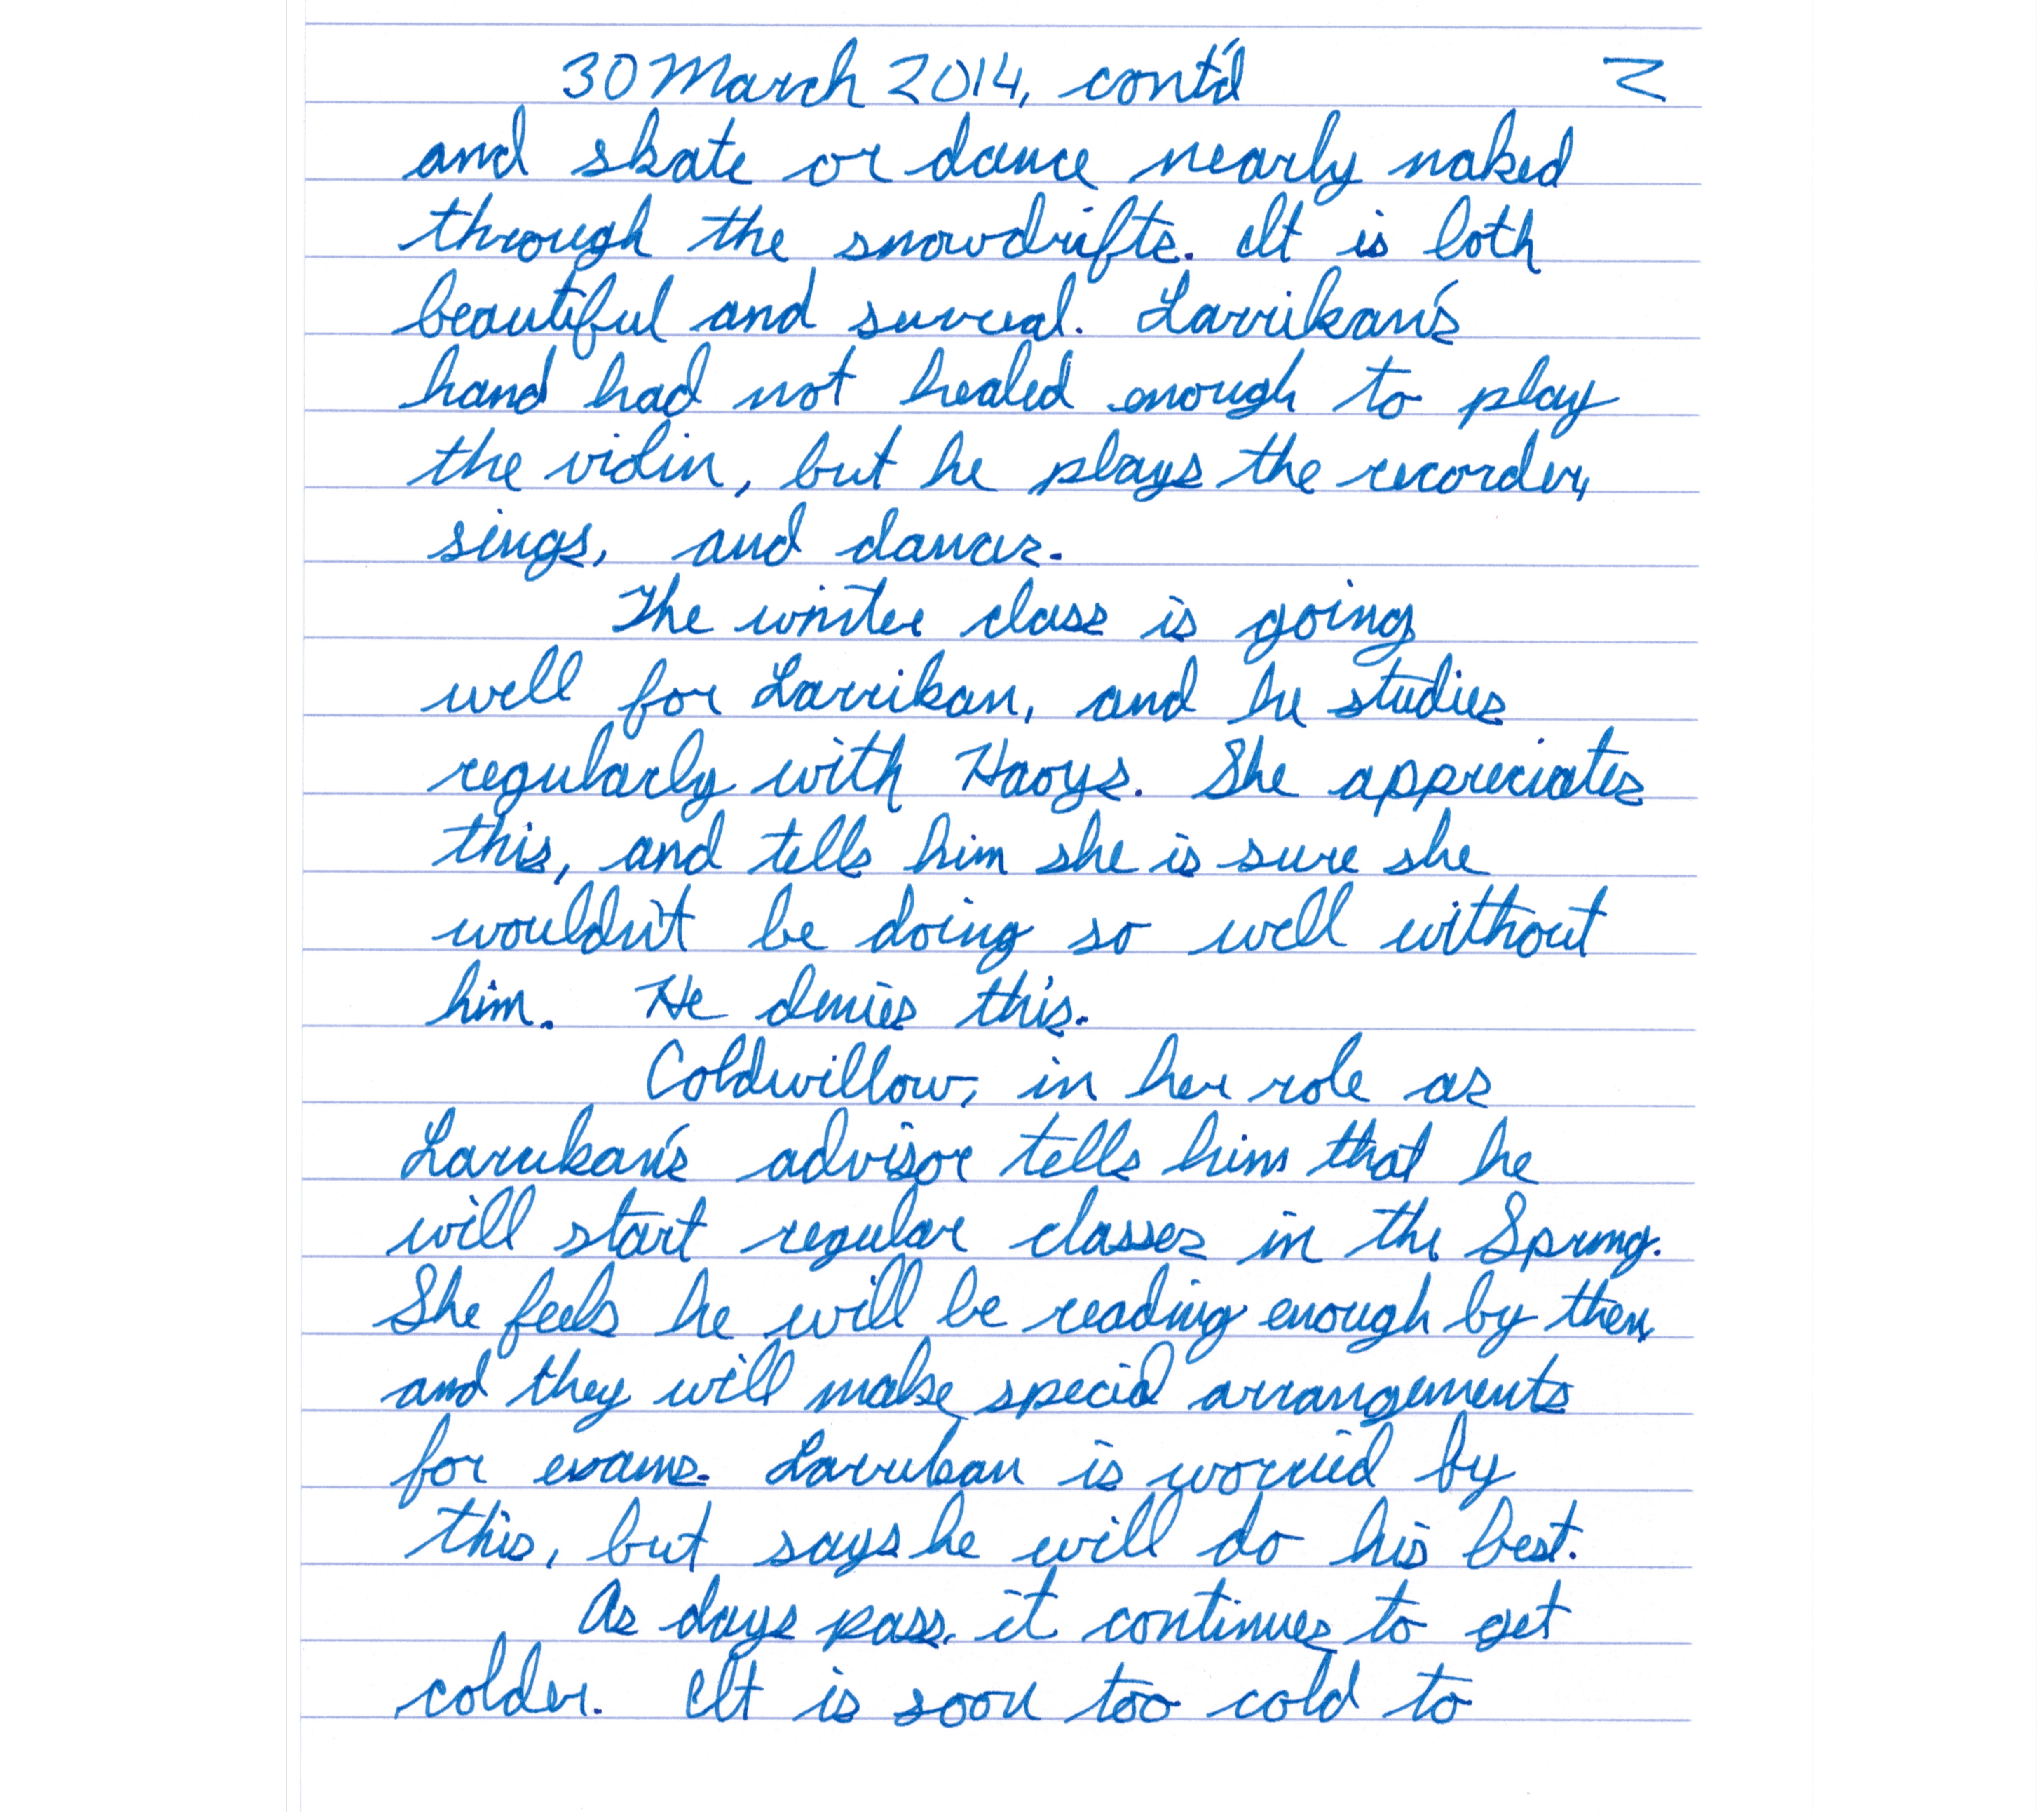 30 March 2014, cont'd 2
and skate or dance nearly naked
through the snowdrifts. It is both
beautiful and surreal. Larrikan's
hand had not healed enough to play
the violin, but he plays the recorder,
sings, and dances.
The winter class is going
well for Larrikan, and he studies
regularly with Haoys. She appreciates
this, and tells him she is sure she
wouldn't be doing so well without
him. He denies this.
Coldwillow, in her role as
Larrikan's advisor tells him that he
will start regular classes in the Spring.
She feels he will be reading enough by then,
and they will make special arrangements
for exams. Larrikan is worried by
this, but says he will do his best.
As days pass, it continues to get
colder. It is soon too cold to